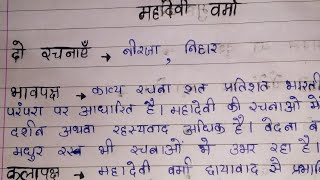 महादेवी वर्मा
दो रचनाएँ → नीरजा, निहार
भावपक्ष → काव्य रचना शत प्रतिशत भारती
परंपरा पर आधारित है। महादेवी की रचनाओं में
दर्शन अथवा रहस्यवाद अधिक है। वेदना व
मधुर रस भी रचनाओं में उभर रहा है।
कलापक्ष → महादेवी वर्मा छायावाद से प्रभावि